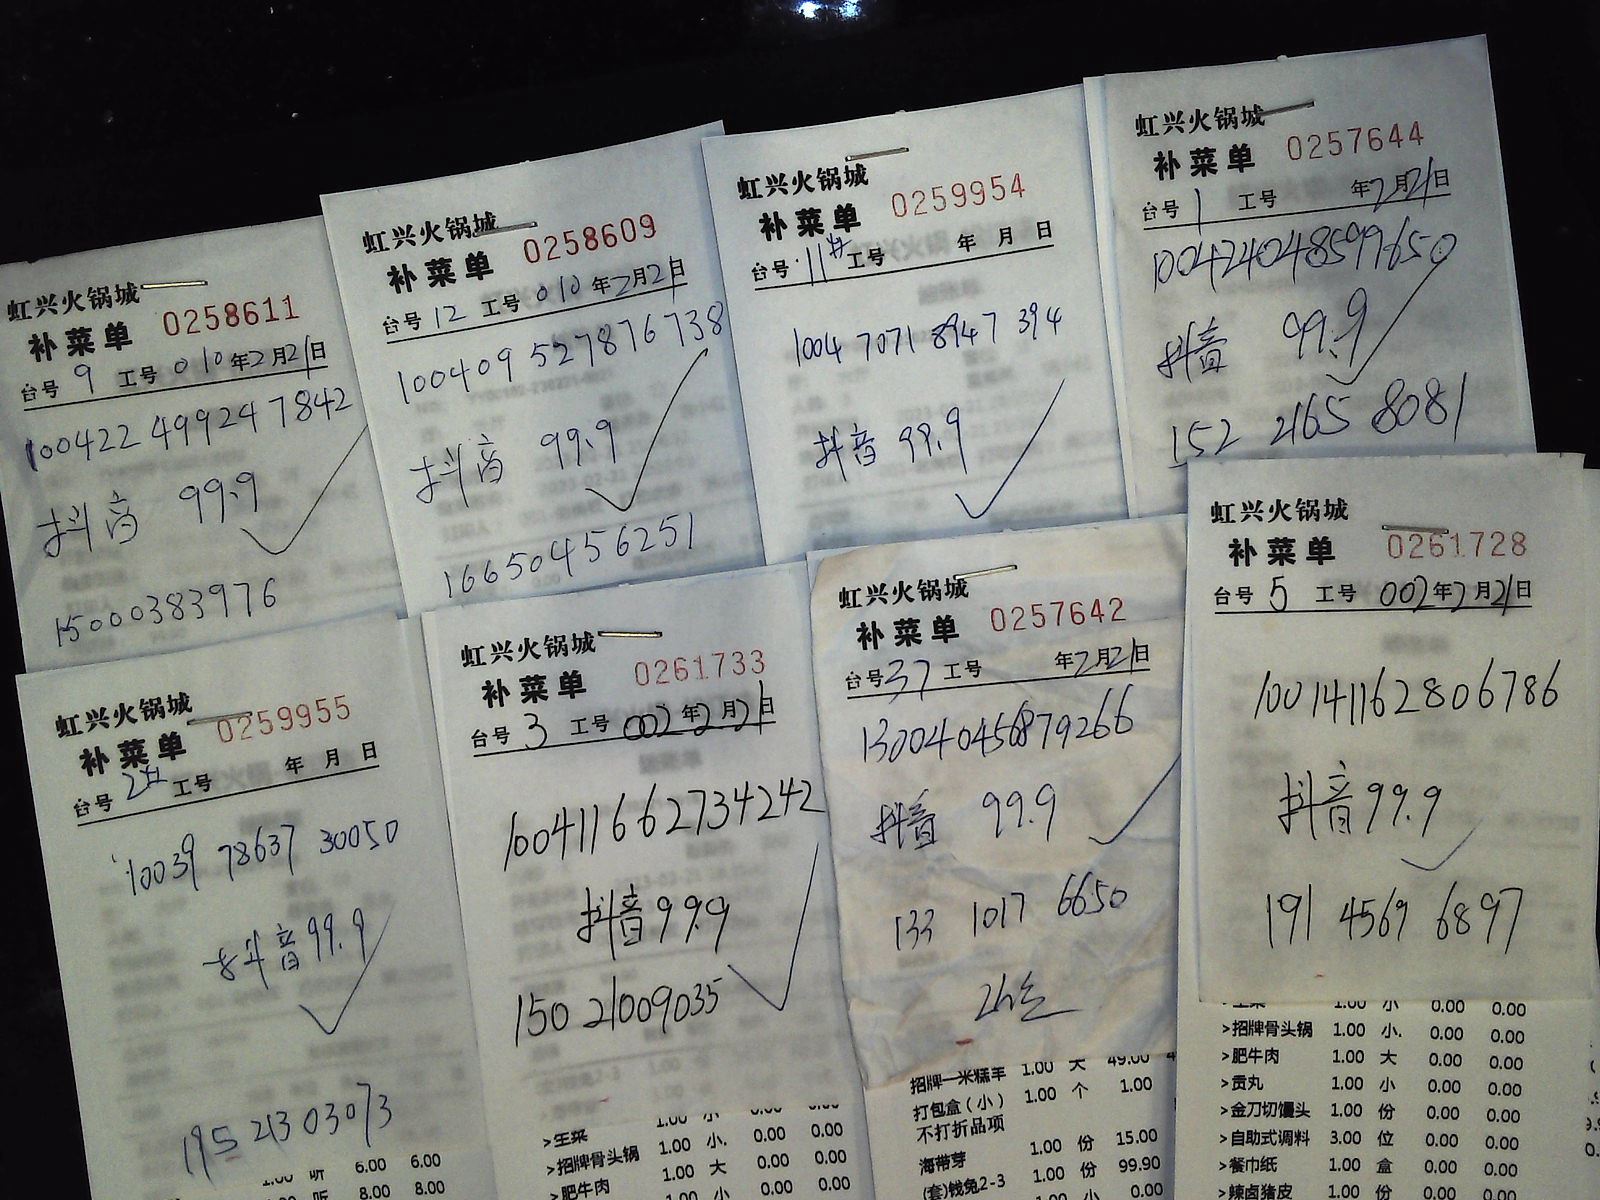 虹兴火锅城
补菜单 0258611
台号 9 工号 010 年 2 月 21 日
100422 499247842
抖音 99.9
15000383976
虹兴火锅城
补菜单 0258609
台号 12 工号 010 年 2 月 21 日
100409 527876738
抖音 99.9
16650456251
虹兴火锅城
补菜单 0259954
台号 11# 工号 年 月 日
1004 7071 8947 394
抖音 99.9
虹兴火锅城
补菜单 0257644
台号 1 工号 年 2 月 21 日
100424048599650
抖音 99.9
152 2165 8081
虹兴火锅城
补菜单 0259955
台号 2# 工号 年 月 日
10039 78637 30050
抖音 99.9
195 21303073
听 6.00 6.00
1.00 听 8.00 8.00
虹兴火锅城
补菜单 0261733
台号 3 工号 002 年 2 月 21 日
100411662734242
抖音 99.9
150 21009035
>生菜 1.00 小 0.00 0.00
>招牌骨头锅 1.00 小. 0.00 0.00
>肥牛肉 1.00 大 0.00 0.00
1.00 小 0.00 0.00
虹兴火锅城
补菜单 0257642
台号 37 工号 年 2 月 21 日
130040456879266
抖音 99.9
133 1017 6650
招牌一米糕羊 1.00 大 49.00
打包盒(小) 1.00 个 1.00
不打折品项
海带芽 1.00 份 15.00
(套)钱兔2-3 1.00 份 99.90
小 0.00
虹兴火锅城
补菜单 0261728
台号 5 工号 002 年 2 月 21 日
100141162806786
抖音 99.9
191 4569 6897
>生菜 1.00 小 0.00 0.00
>招牌骨头锅 1.00 小. 0.00 0.00
>肥牛肉 1.00 大 0.00 0.00
>贡丸 1.00 小 0.00 0.00
>金刀切馒头 1.00 份 0.00 0.00
>自助式调料 3.00 位 0.00 0.00
>餐巾纸 1.00 盒 0.00 0.00
>辣卤猪皮 1.00 份 0.00 0.00